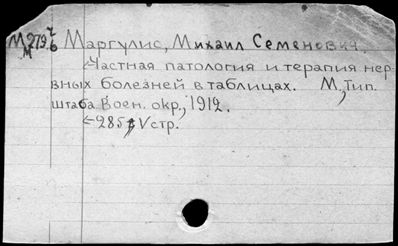 М 279 7/6 Маргулис, Михаил Семенович.
М
Частная патология и терапия нер-
вных болезней в таблицах. М, тип.
штаба Воен. окр., 1912.
285, V стр.